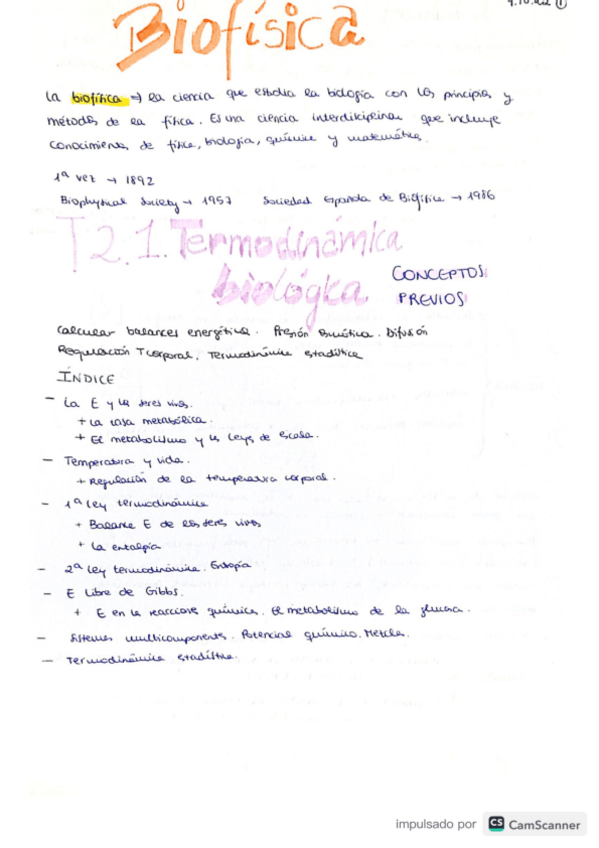 Biofísica
La biofísica → es la ciencia que estudia la biología con los principios y
métodos de la física. Es una ciencia interdisciplinar que incluye
conocimientos de física, biología, química y matemática.
1ª vez → 1892
Biophysical Society → 1957 Sociedad Española de Biofísica → 1986
T2.1. Termodinámica
biológica
CONCEPTOS
PREVIOS
Calcular balances energéticos. Presión Osmótica. Difusión
Regulación T corporal. Termodinámica estadística
ÍNDICE
- La E y los seres vivos.
+ La tasa metabólica.
+ El metabolismo y las leyes de escala.
- Temperatura y vida.
+ Regulación de la temperatura corporal.
- 1ª ley termodinámica
+ Balance E de los seres vivos
+ La entalpía
- 2ª ley termodinámica. Entropía
- E Libre de Gibbs.
+ E en las reacciones químicas. El metabolismo de la glucosa.
- Sistemas multicomponentes. Potencial químico. Mezcla.
- Termodinámica estadística.
impulsado por CS CamScanner